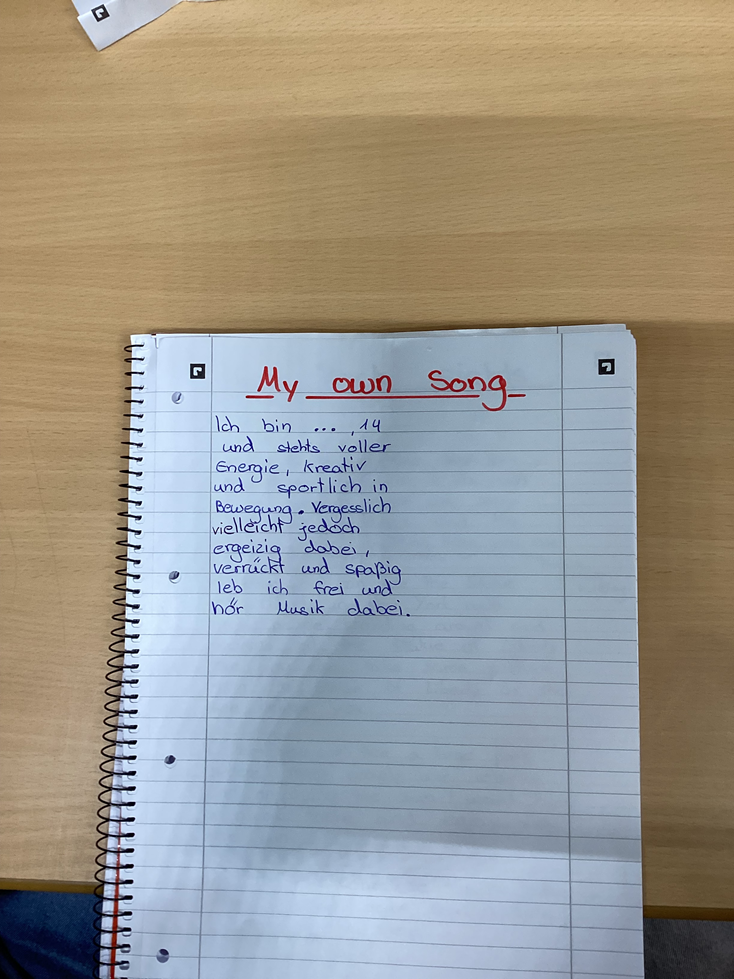 My own Song
Ich bin ... , 14
und stehts voller
Energie, kreativ
und sportlich in
Bewegung. Vergesslich
vielleicht jedoch
ergeizig dabei,
verrückt und spaßig
leb ich frei und
hör Musik dabei.